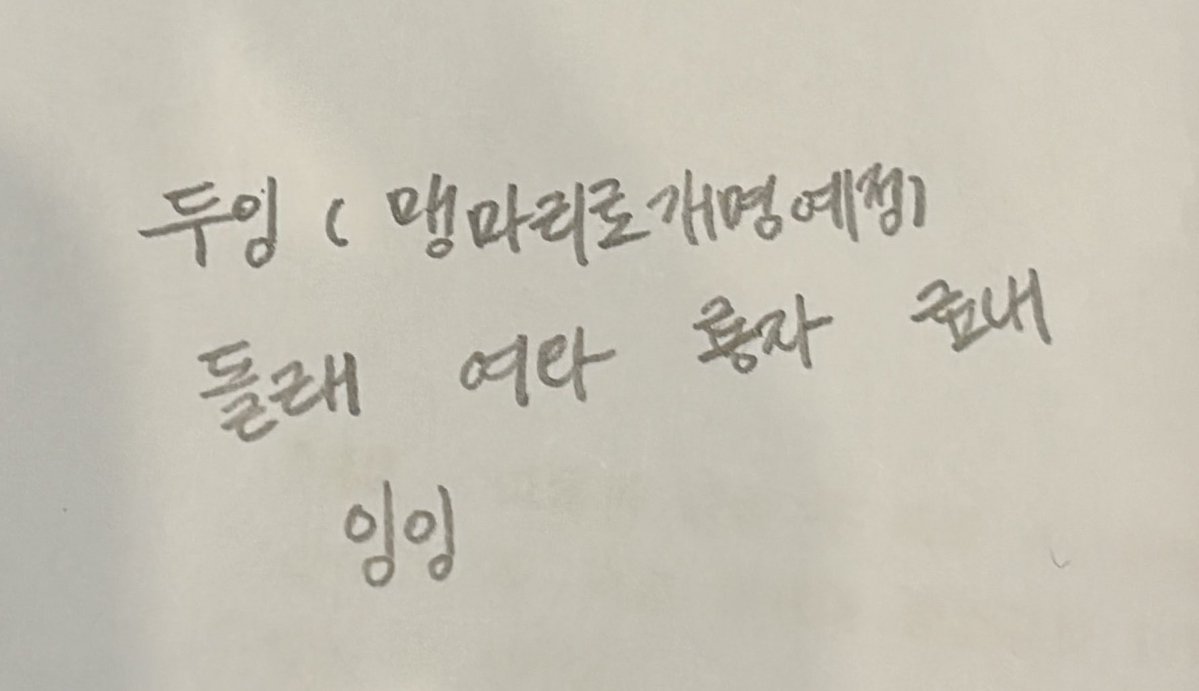 두잉 ( 맹마리로개명예정)
돌래 여라 룡자 료내
잉잉